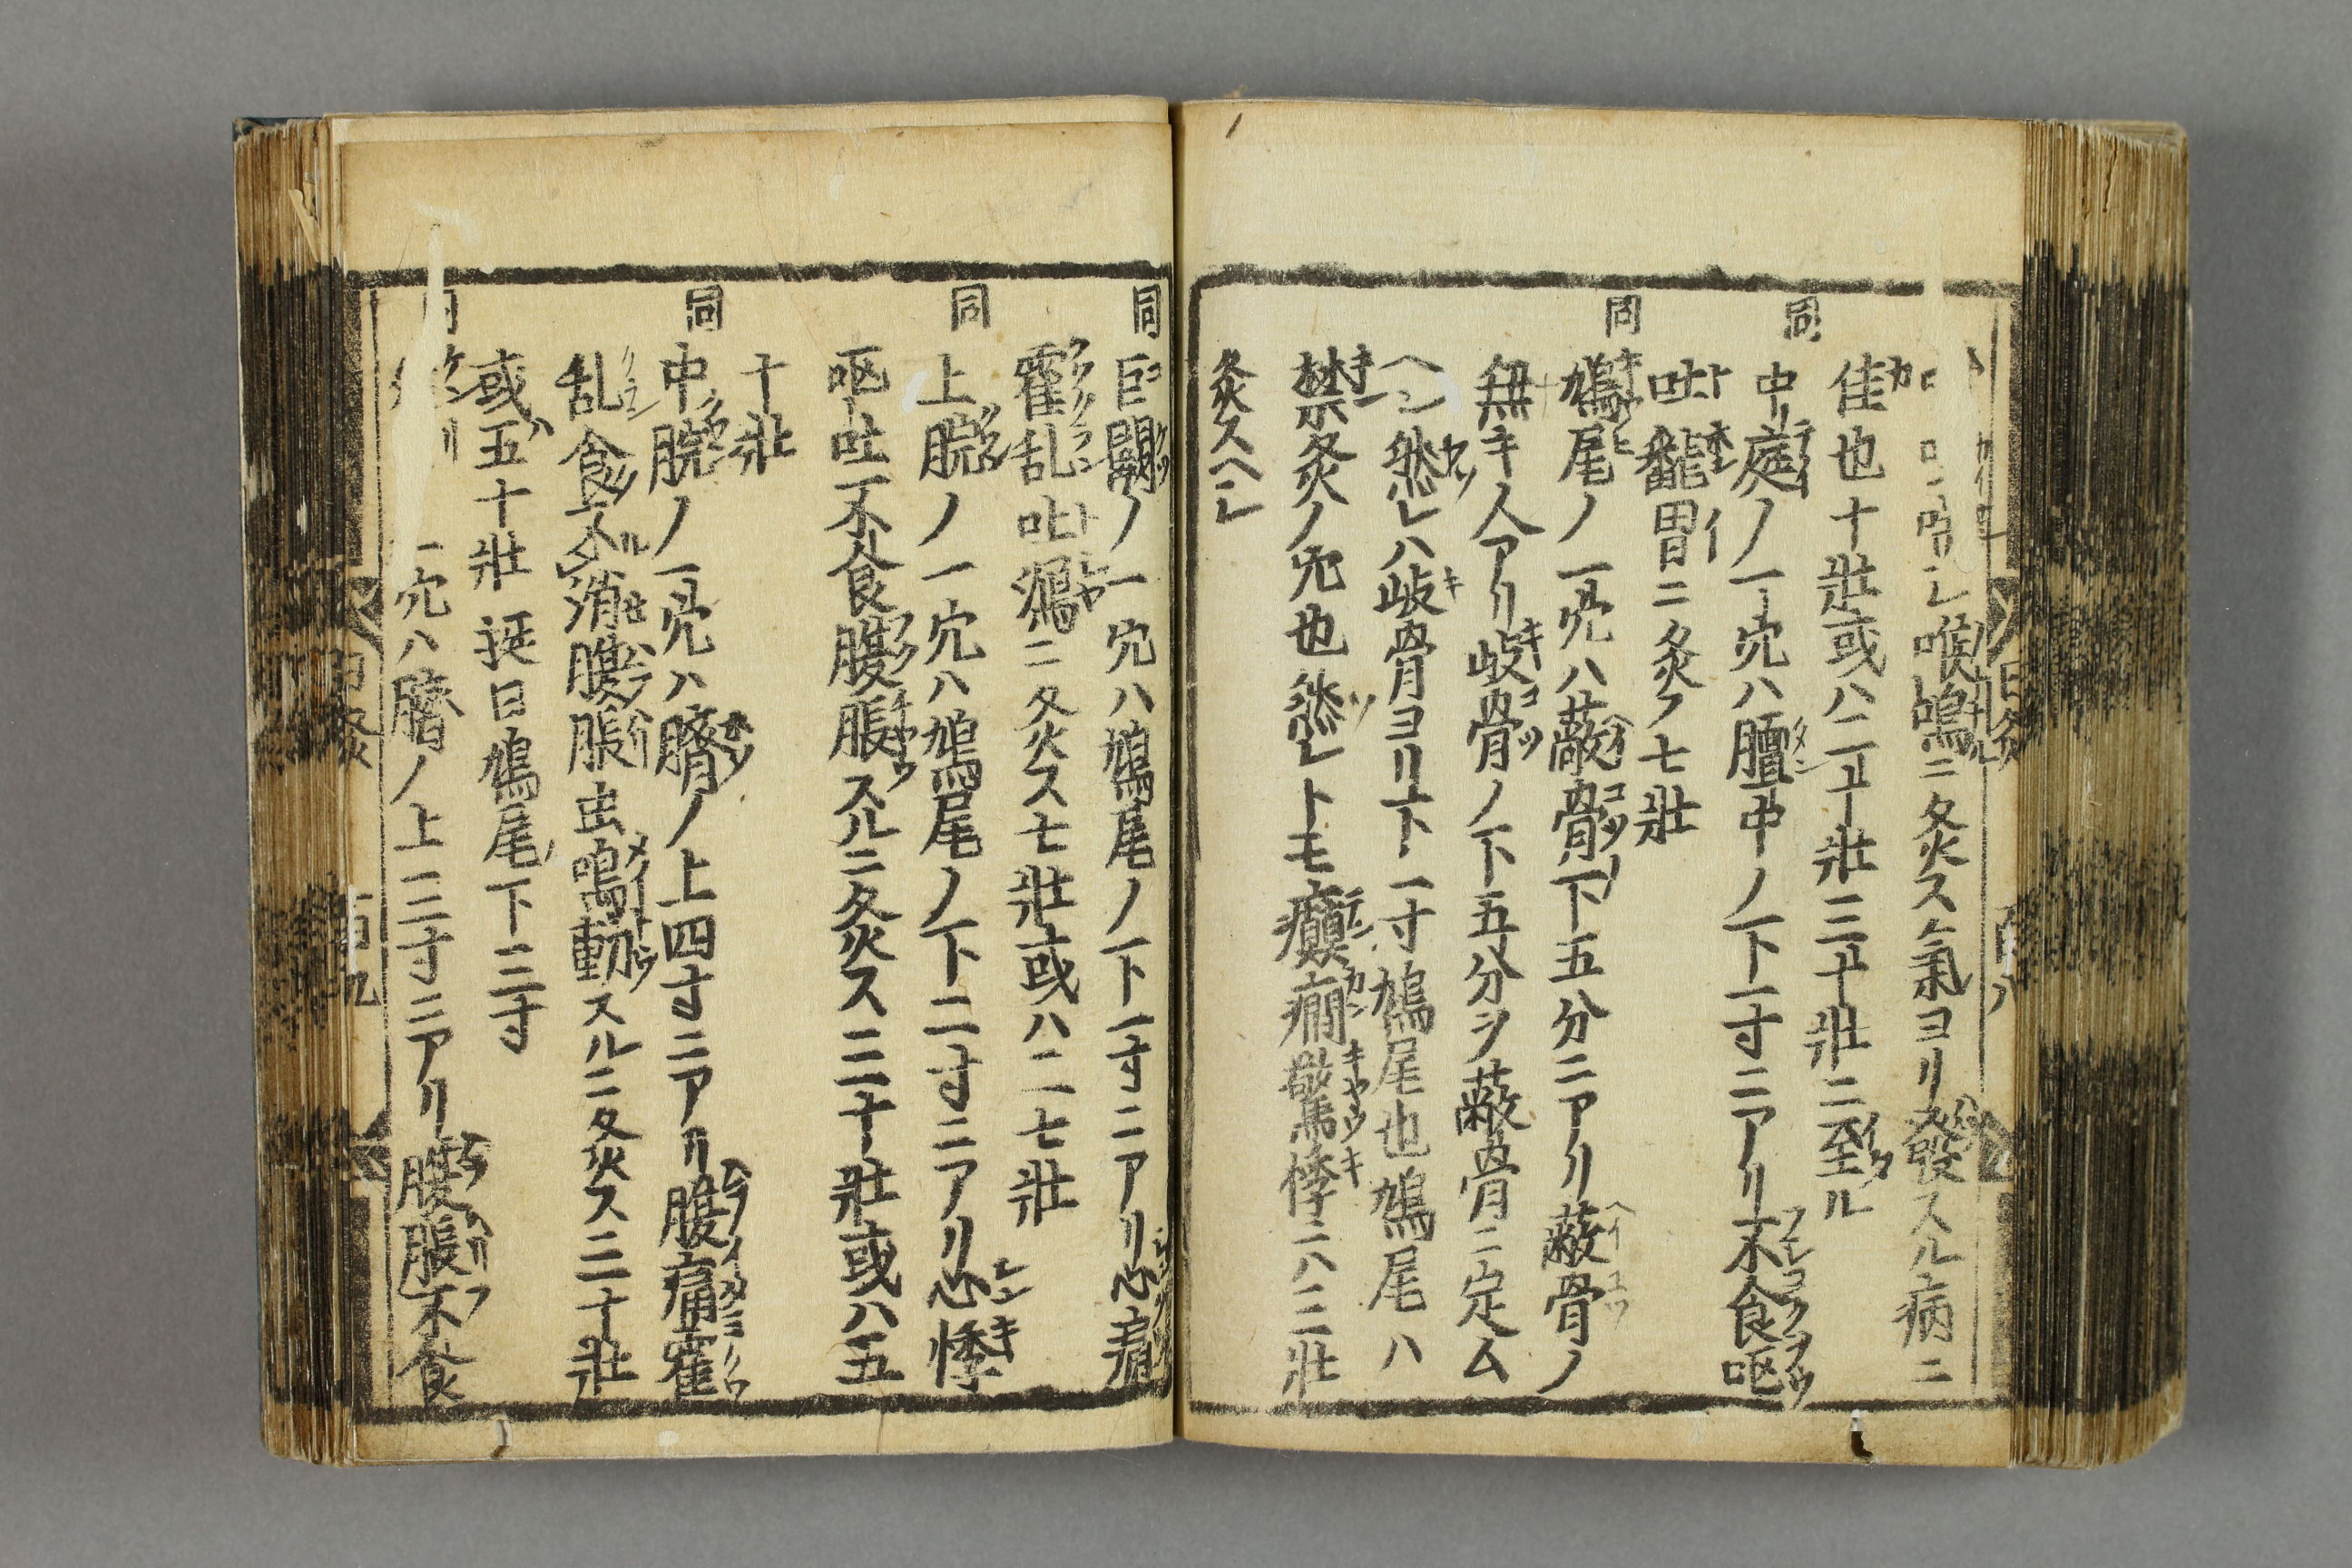 喉鳴ニ灸ス氣ヨリ發スル病ニ
佳也十壯或ハ二十壯三十壯ニ至ル
同 中庭ノ一穴ハ膻中ノ下一寸ニアリ不食呕
吐翻胃ニ灸ス七壯
同 鳩尾ノ一穴ハ蔽骨下五分ニアリ蔽骨ノ
無キ人アリ歧骨ノ下五分ヲ蔽骨ニ定ム
ヘシ然レハ歧骨ヨリ下一寸鳩尾也鳩尾ハ
禁灸ノ穴也然レトモ癲癇驚悸ニハ三壯
灸スヘシ
同 巨闕ノ一穴ハ鳩尾ノ下一寸ニアリ心痛
霍乱吐瀉ニ灸ス七壯或ハ二七壯
同 上脘ノ一穴ハ鳩尾ノ下二寸ニアリ心悸
呕吐不食腹脹スルニ灸ス二三十壯或ハ五
十壯
同 中脘ノ一穴ハ臍ノ上四寸ニアリ腹痛霍
乱食不消腹脹虫鳴動スルニ灸ス二三十壯
或五十壯 挺曰鳩尾下三寸
一穴ハ臍ノ上三寸ニアリ腹脹不食